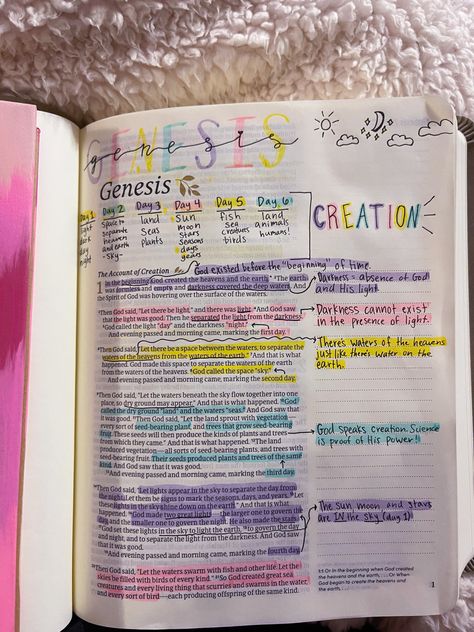 GENESIS
genesis
Genesis
CREATION
Day 1
light
dark
day
night
Day 2
space to
separate
heaven
and earth
-sky-
Day 3
land
seas
plants
Day 4
sun
moon
stars
seasons
days
years
Day 5
fish
sea
creatures
birds
Day 6
land
animals
humans!
The Account of Creation
God existed before the "beginning" of time.
1 In the beginning God created the heavens and the earth. ²The earth
was formless and empty, and darkness covered the deep waters. And
the Spirit of God was hovering over the surface of the waters.
Darkness = absence of God
and His light.
³Then God said, "Let there be light," and there was light. ⁴And God saw
that the light was good. Then he separated the light from the darkness.
⁵God called the light "day" and the darkness "night."
And evening passed and morning came, marking the first day.
Darkness cannot exist
in the presence of light.
⁶Then God said, "Let there be a space between the waters, to separate the
waters of the heavens from the waters of the earth." ⁷And that is what
happened. God made this space to separate the waters of the earth
from the waters of the heavens. ⁸God called the space "sky."
And evening passed and morning came, marking the second day.
There's waters of the heavens
just like there's water on the
earth.
⁹Then God said, "Let the waters beneath the sky flow together into one
place, so dry ground may appear." And that is what happened. ¹⁰God
called the dry ground "land" and the waters "seas." And God saw that
it was good. ¹¹Then God said, "Let the land sprout with vegetation—
every sort of seed-bearing plant, and trees that grow seed-bearing
fruit. These seeds will then produce the kinds of plants and trees
from which they came." And that is what happened. ¹²The land
produced vegetation—all sorts of seed-bearing plants, and trees with
seed-bearing fruit. Their seeds produced plants and trees of the same
kind. And God saw that it was good.
¹³And evening passed and morning came, marking the third day.
God speaks creation. Science
is proof of His power!!
¹⁴Then God said, "Let lights appear in the sky to separate the day from
the night. Let them be signs to mark the seasons, days, and years. ¹⁵Let
these lights in the sky shine down on the earth." And that is what
happened. ¹⁶God made two great lights—the larger one to govern the
day, and the smaller one to govern the night. He also made the stars.
¹⁷God set these lights in the sky to light the earth, ¹⁸to govern the day
and night, and to separate the light from the darkness. And God saw
that it was good.
¹⁹And evening passed and morning came, marking the fourth day.
The sun, moon and stars
are IN the sky (day 1)
²⁰Then God said, "Let the waters swarm with fish and other life. Let the
skies be filled with birds of every kind." ²¹So God created great sea
creatures and every living thing that scurries and swarms in the water,
and every sort of bird—each producing offspring of the same kind.
1:1 Or In the beginning when God created the
heavens and the earth, . . . Or When
God began to create the heavens and
the earth, . . .
1